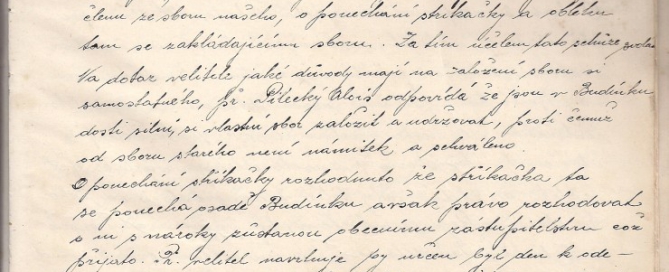 členu ze sboru našeho, o ponechání stříkačky a obleku
tam se zakládajícímu sboru. Za tím účelem tato schůze
Na dotaz velitele jaké důvody mají na založení sboru si
samostatného, př. Pilecký Alois odpovídá že jsou v Budínku
dosti silní, si vlastní sbor založit a udržovat, proti čemuž
od sboru starého není námitek a schváleno.
O ponechání stříkačky rozhodnuto že stříkačka ta
se ponechá osadě Budínku avšak právo rozhodovat
o ni s nároky zůstanou obecnímu zastupitelstvu což
přijato. Př. velitel navrhuje by určen byl den k ode-